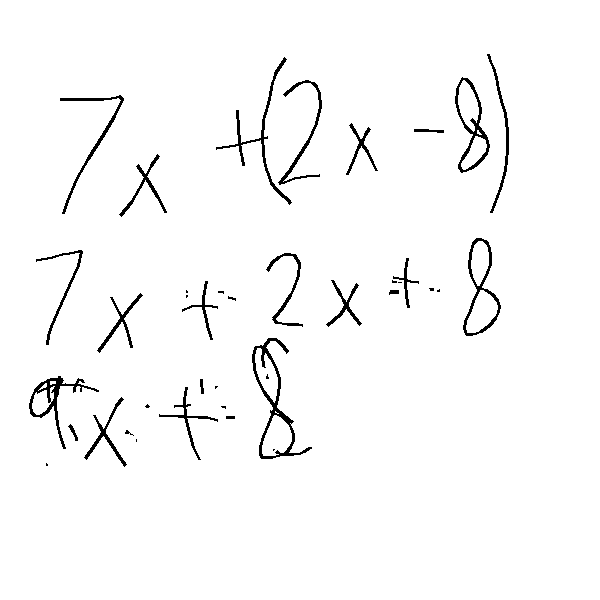 7x + (2x - 8)
7x + 2x + 8
9x + 8